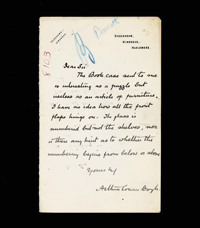 UNDERSHAW,
HINDHEAD,
HASLEMERE.
Dear Sir
The Book case sent to me
is interesting as a puzzle but
useless as an article of furniture.
I have no idea how all the front
flaps hinge on. The glass is
numbered but not the shelves, nor
is there any hint as to whether the
numbering begins from below or above
Yours ffy
Arthur Conan Doyle